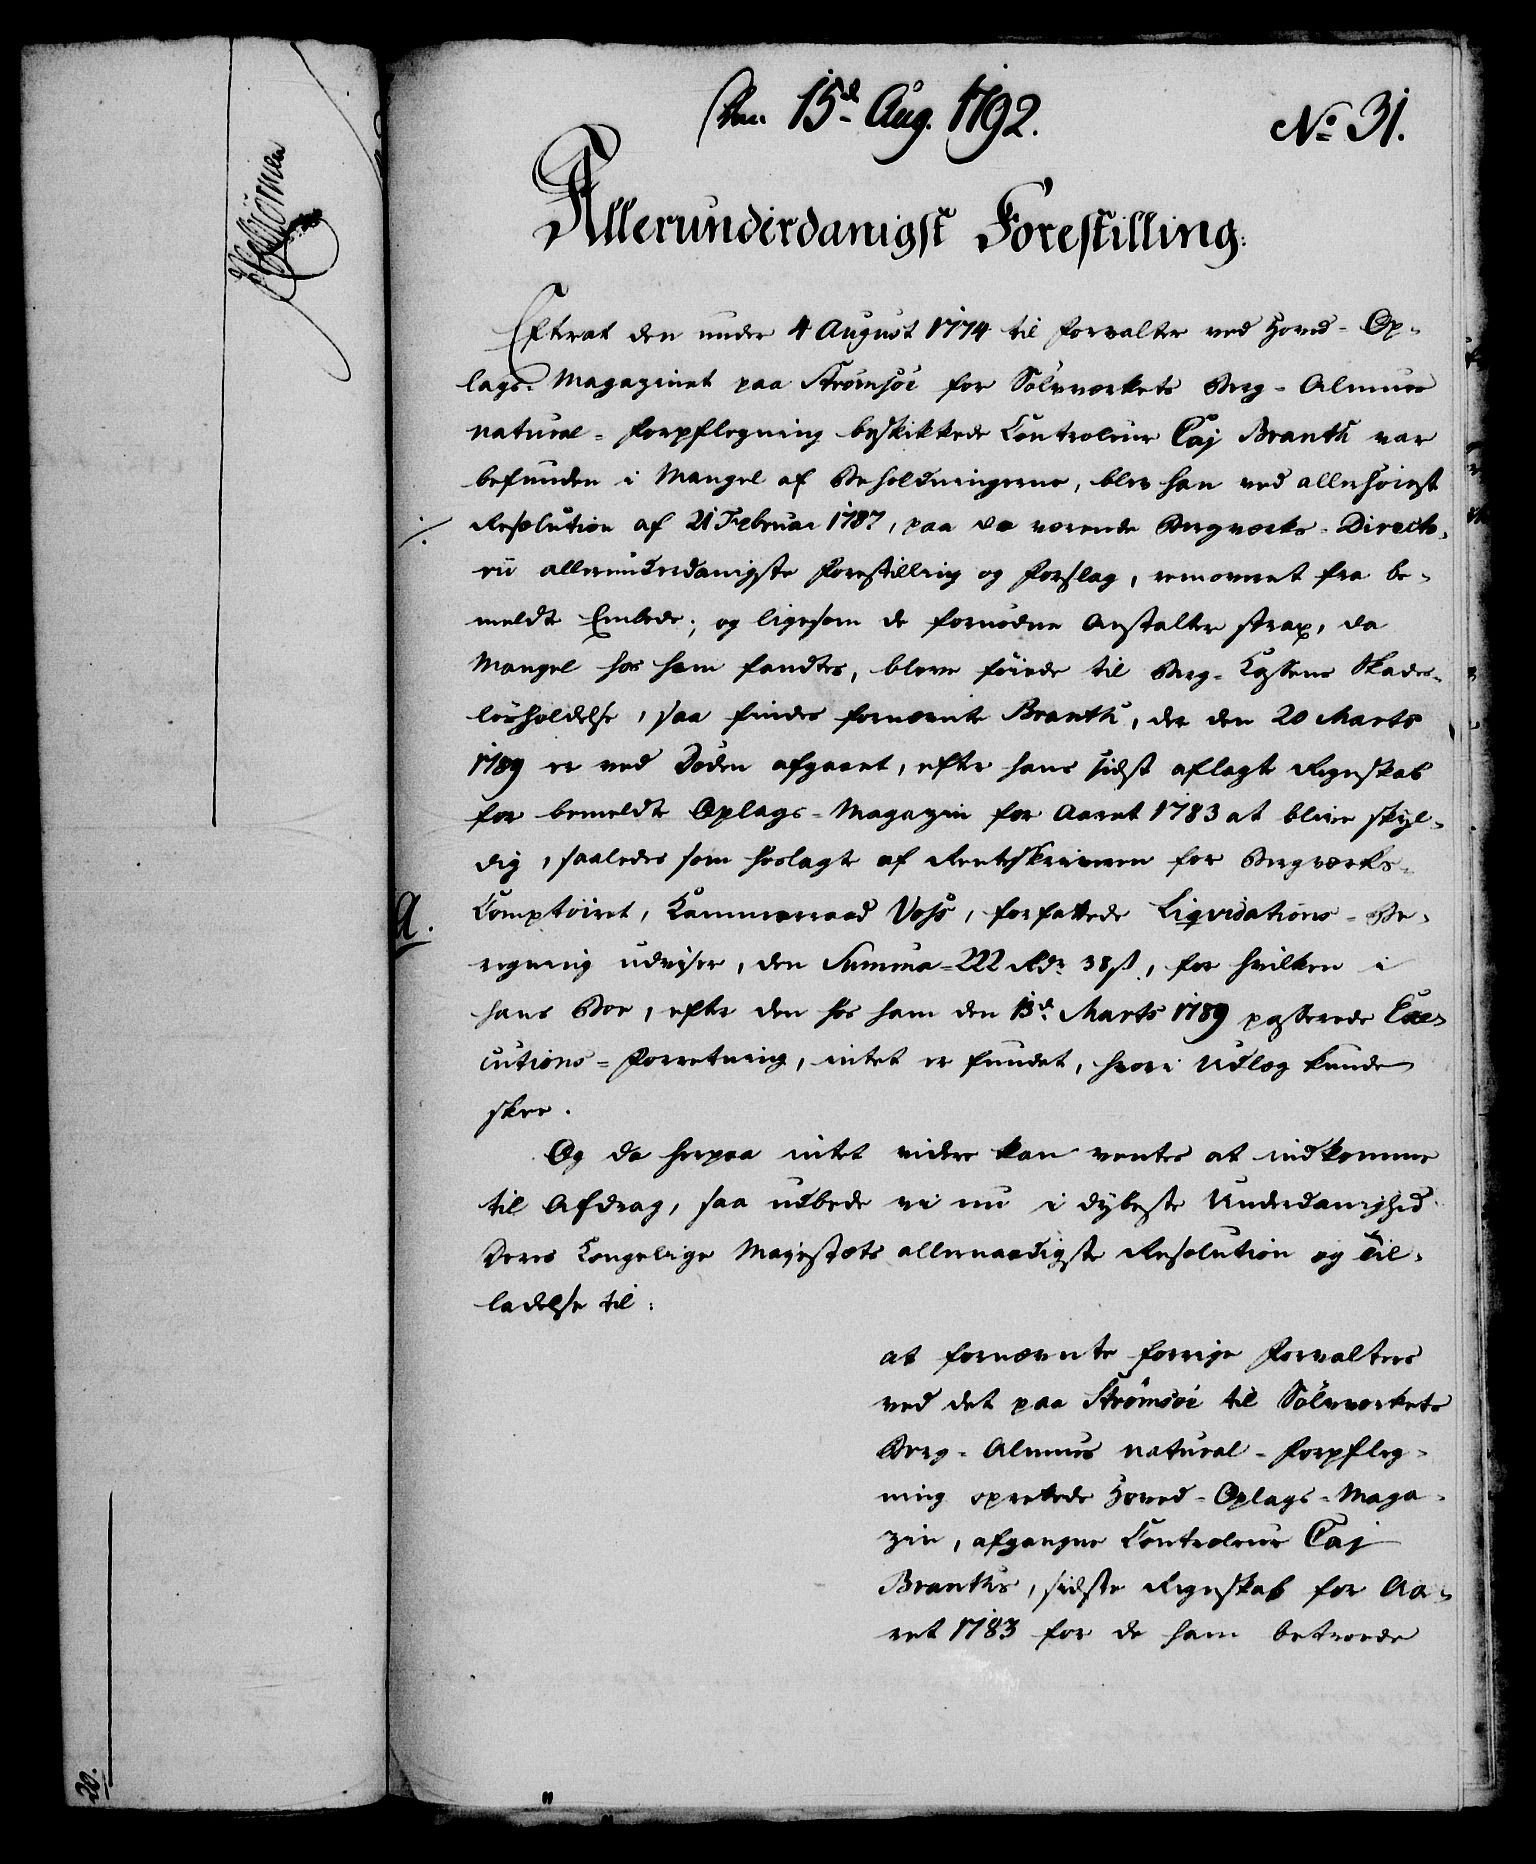 Den 15d Aug. 1792.
No 31.
Allerunderdanigst Forestilling:
Efterat den under 4 August 1774 til Forvalter ved Hoved-Op-
lags-Magazinet paa Strömsöe for Sölvverkets Berg-Almues
natural-Forpflegning beskikkede Controleur Caj Branth var
befunden i Mangel af Beholdningerne, blev han ved allerhöiest
Resolution af 21 Februar 1787, paa da værende Bergværks-Directo-
rii allerunderdanigste Forestilling og Forslag, removeret fra be-
meldte Embede; og ligesom de fornödne Anstalter strax, da
Mangel hos ham fandtes, bleve föiede til Berg-Cassens Skades-
lösholdelse, saa findes fornævnte Branth, der den 20 Marts
1789 er ved Döden afgaaet, efter hans sidst aflagte Regnskab
for bemeldte Oplags-Magazin for Aaret 1783 at blive skyl-
dig, saaledes som hoslagte af Renteskriveren for Bergværks-
A.
Comptoiret, Kammerraad Voss, forfattede Liqvidations-Be-
regning udviser, den Summa 222 Rdr 38 s, for hvilken i
hans Boe, efter den hos ham den 13d Marts 1789 passerede Exe-
cutions-Forretning, intet er fundet, hvori Udlæg kunde
skee.
Og da herpaa intet videre kan ventes at indkomme
til Afdrag, saa udbede vi nu i dybeste Underdanighed
Deres Kongelige Majestæts allernaadigste Resolution og Til-
ladelse til:
at fornævnte forrige Forvalters
ved det paa Strömsöe til Sölvverkets
Berg-Almues natural-Forpfleg-
ning oprettede Hoved-Oplags-Maga-
zin, afgangne Controleur Caj
Branths, sidste Regnskab for Aa-
ret 1783 for de ham betroede
20.